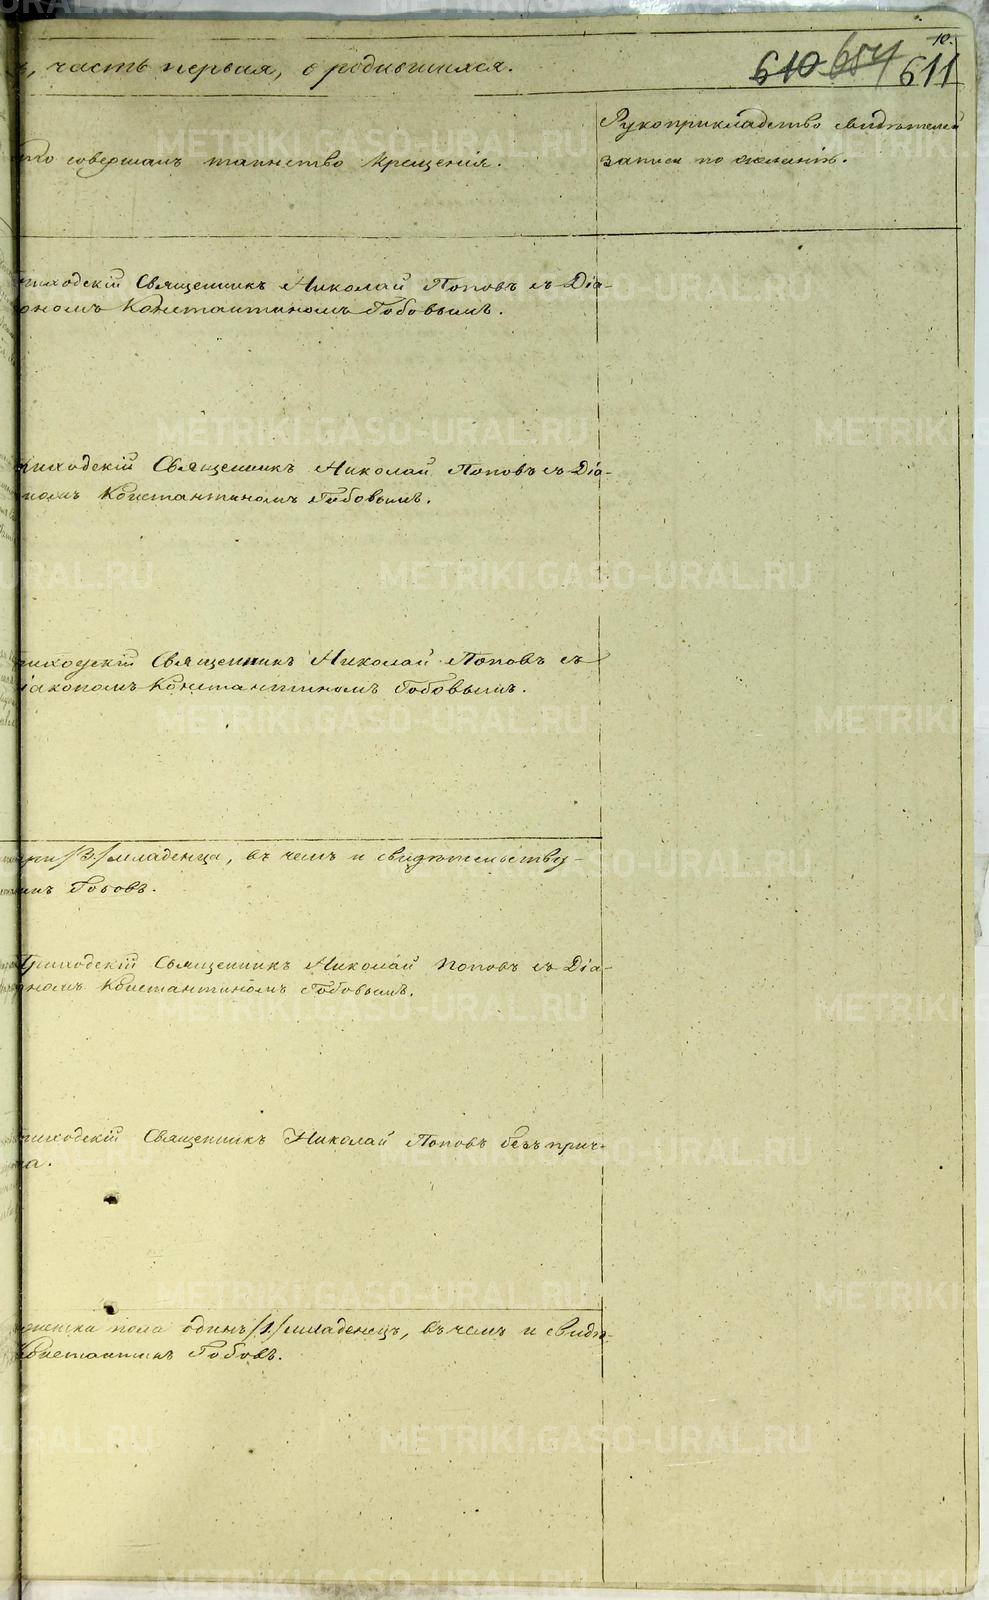 10.
ъ, часть первая, о родившихся.
610 654 611
кто совершалъ таинство крещенія.
Рукоприкладство свидѣтелей
записи по желанію.
приходскій Священникъ Николай Поповъ съ Діа-
кономъ Константиномъ Гобовымъ.
приходскій Священникъ Николай Поповъ съ Діа-
кономъ Константиномъ Гобовымъ.
приходскій Священникъ Николай Поповъ съ
Діакономъ Константиномъ Гобовымъ.
три /3./ младенца, въ чемъ и свидѣтельству-
Гобовъ.
Приходскій Священникъ Николай Поповъ съ Діа-
кономъ Константиномъ Гобовымъ.
приходскій Священникъ Николай Поповъ безъ прич-
та.
женска пола одинъ /1./ младенецъ, въ чемъ и свидѣ-
Константинъ Гобовъ.
METRIKI.GASO-URAL.RU